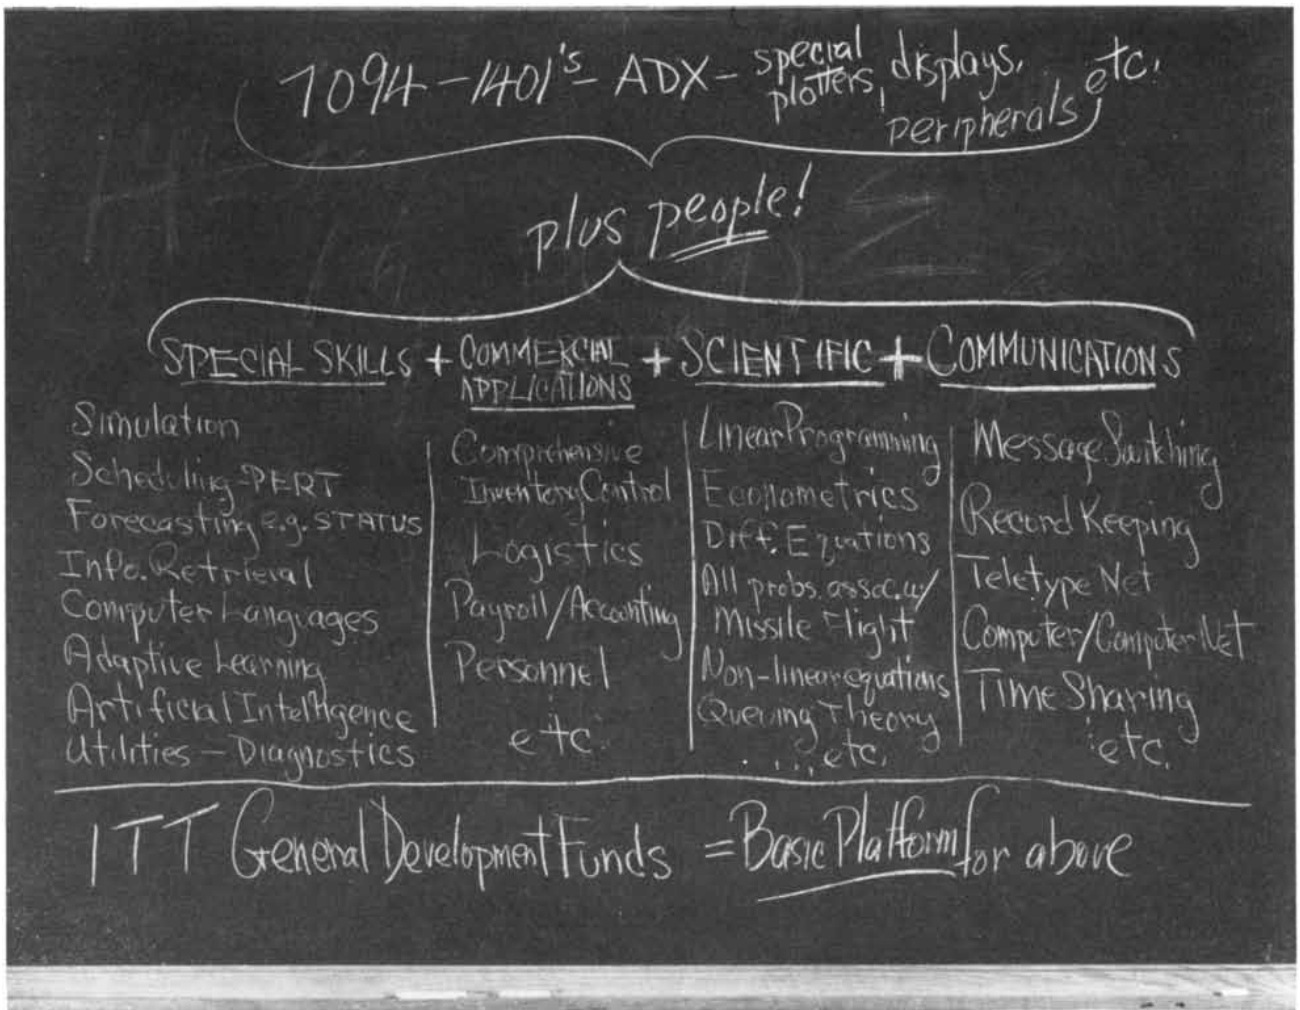 7094-1401's-ADX- special plotters, displays, peripherals etc.
plus people!
SPECIAL SKILLS + COMMERCIAL APPLICATIONS + SCIENTIFIC + COMMUNICATIONS
Simulation
Scheduling-PERT
Forecasting e.g. STATUS
Info. Retrieval
Computer Languages
Adaptive Learning
Artificial Intelligence
Utilities - Diagnostics
Comprehensive
Inventory Control
Logistics
Payroll/Accounting
Personnel
etc.
Linear Programming
Econometrics
Diff. Equations
All probs. assoc. w/
Missile Flight
Non-linear equations
Queuing Theory
...etc.
Message Switching
Record Keeping
Teletype Net
Computer/Computer Net
Time Sharing
etc.
ITT General Development Funds = Basic Platform for above